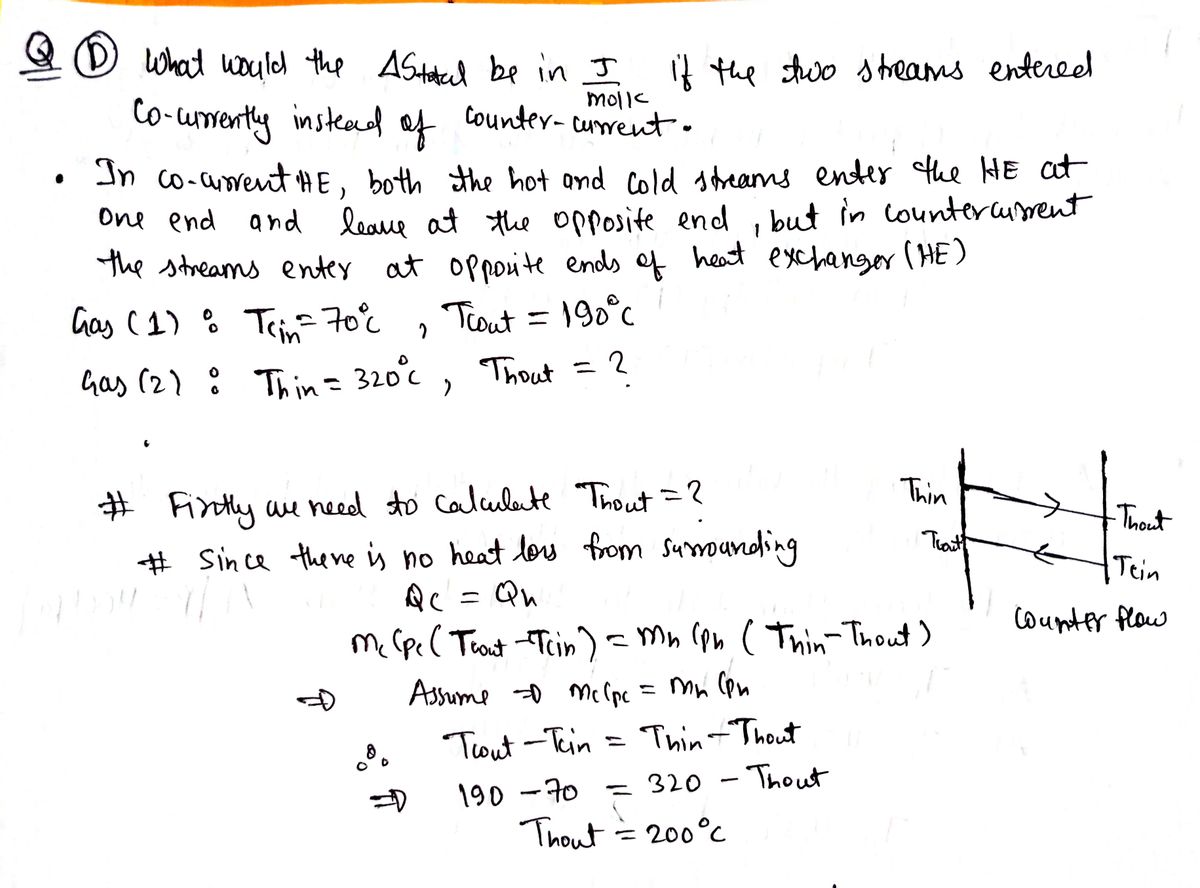 Q D What would the ΔStotal be in J/molK if the two streams entered
Co-currently instead of Counter-current.
• In co-current HE, both the hot and cold streams enter the HE at
one end and leave at the opposite end, but in countercurrent
the streams enter at opposite ends of heat exchanger (HE)
Gas (1) : Tcin = 70°C , Tcout = 190°C
Gas (2) : Thin = 320°C , Thout = ?
# Firstly we need to calculate Thout = ?
# Since there is no heat loss from surrounding
Qc = Qh
mc Cpc (Tcout - Tcin) = mh Cph (Thin - Thout)
⇒ Assume ⇒ mc Cpc = mh Cph
∴ Tcout - Tcin = Thin - Thout
⇒ 190 - 70 = 320 - Thout
Thout = 200°C
Thin
Thout
Tcout
Tcin
Counter flow